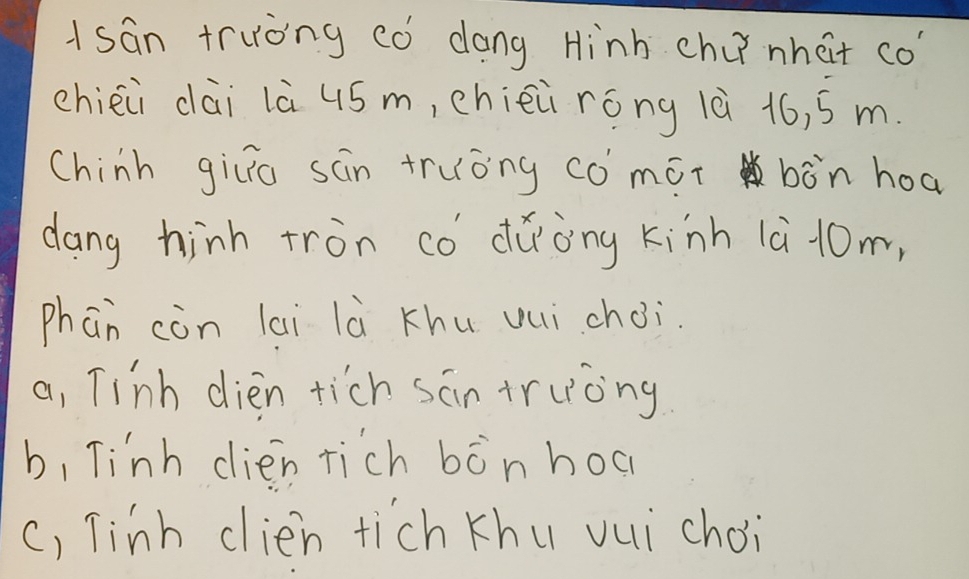 1 sân trường có dạng Hình chữ nhật có
chiều dài là 45 m, chiều rộng là 16,5 m.
Chính giữa sân trường có một bồn hoa
dạng hình tròn có đường kính là 10m,
phần còn lại là khu vui chơi.
a, Tính diện tích sân trường
b, Tính diện tích bồn hoa
c, Tính diện tích khu vui chơi